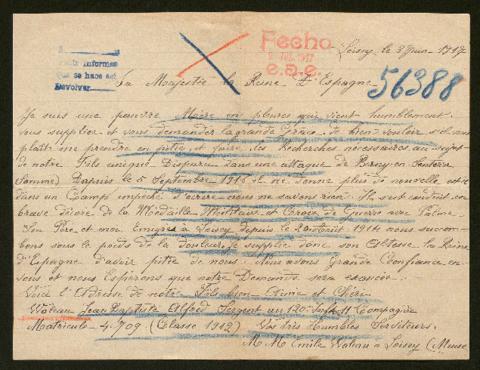 Fecho
e.a.e.
Loisey le 3 Juin 1917
56388
Informes
que se hace acl
Devolver
La Majestée la Reine d'Espagne
Je suis une pauvre Mère en pleures qui vient humblement
vous supplier et vous demander la grande Grâce de bien vouloir s'il vous
plaît me prendre en pitié et faire les Recherches nécessaires au sujet
de notre Fils unique Disparu dans une attaque de Berny en Santerre
Somme) Dapuis le 5 Septembre 1916 il ne donne plus de nouvelle
dans un Camps s'écrire nous ne savons rien. Il sest conduit en
brave décoré de la Medaille Militaire et Croix de Guerre avec Palme.
Son Père et moi Emigrés à Loisey depuis le Août 1914 nous succom-
bons sous le poids de la Douleur Je supplie donc son Altesse la Reine
d'Espagne d'avoir pitié de nous. Nous avons Grande Confiance en
vous et nous Espérons que notre Demande sera exaucée.
Voici l'Adresse de notre Fils bien Aimé et Chéri
Wateau Jean Baptiste Alfred Sergent au 120. Inft 11 Compagnie
Matricule 4.709 (Classe 1912) Vos très Humbles Serviteurs.
M. Mme Emile Wateau à Loisey (Meuse